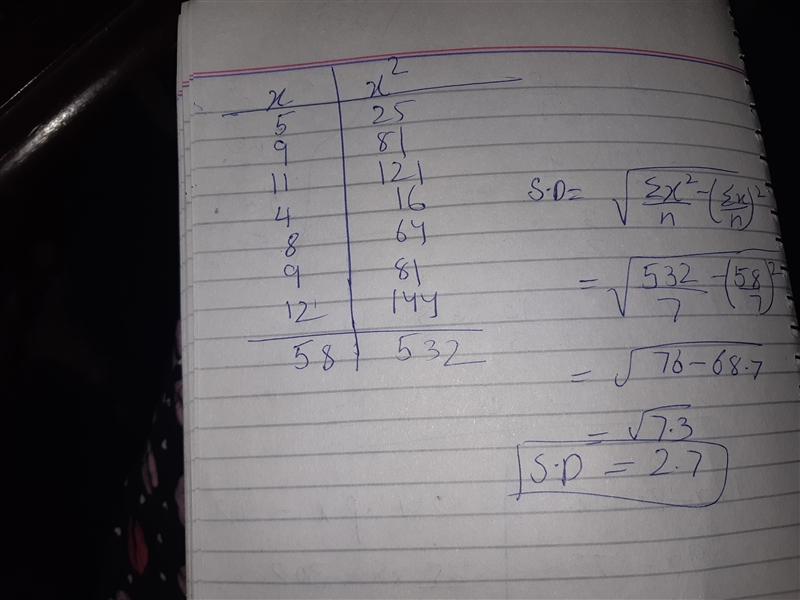 x x²
5 25
9 81
11 121
4 16
8 64
9 81
12 144
58 532
S.D = √(Σx²/n - (Σx/n)²)
= √(532/7 - (58/7)²)
= √(76 - 68.7)
= √7.3
S.D = 2.7